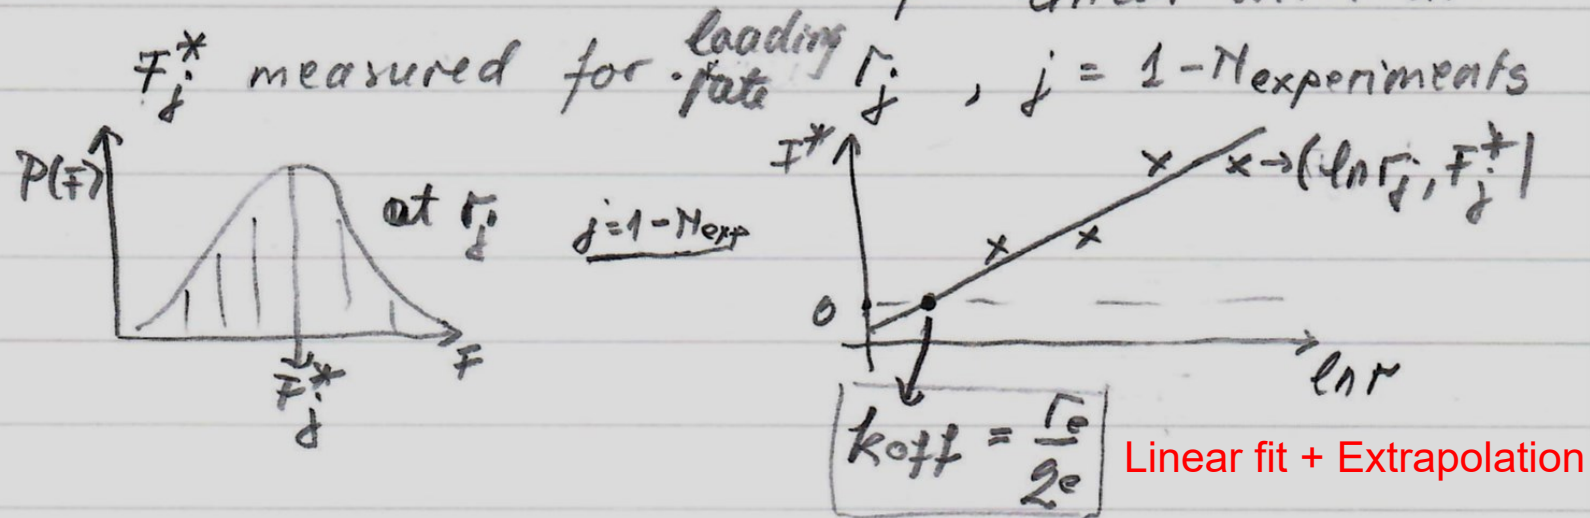 F*j measured for loading rate rj , j = 1 - Nexperiments
P(F)
at rj
F*j
F
j=1-Nexp
F*
x→(ln rj, F*j)
0
ln r
koff = re/2e
Linear fit + Extrapolation